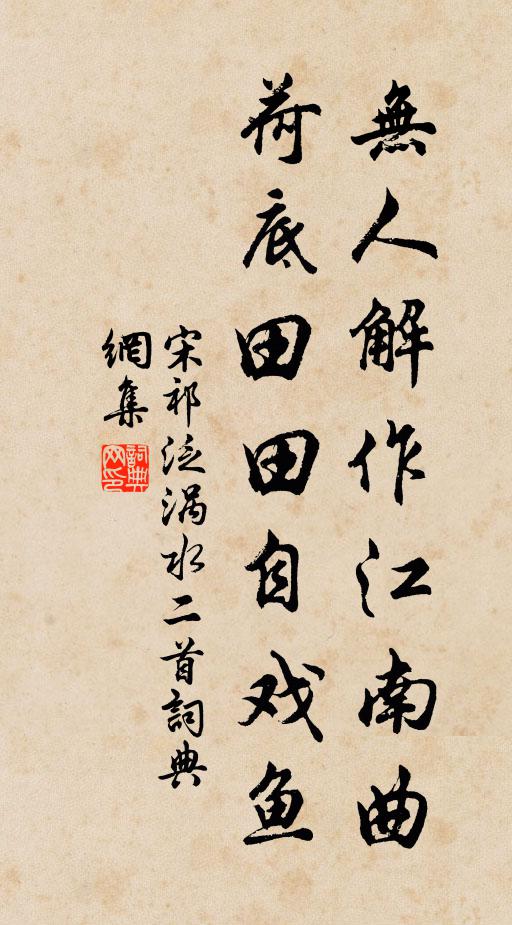 無人解作江南曲
荷底田田自戏鱼
宋祁泛涡水二首詞典
網集
詞典网印